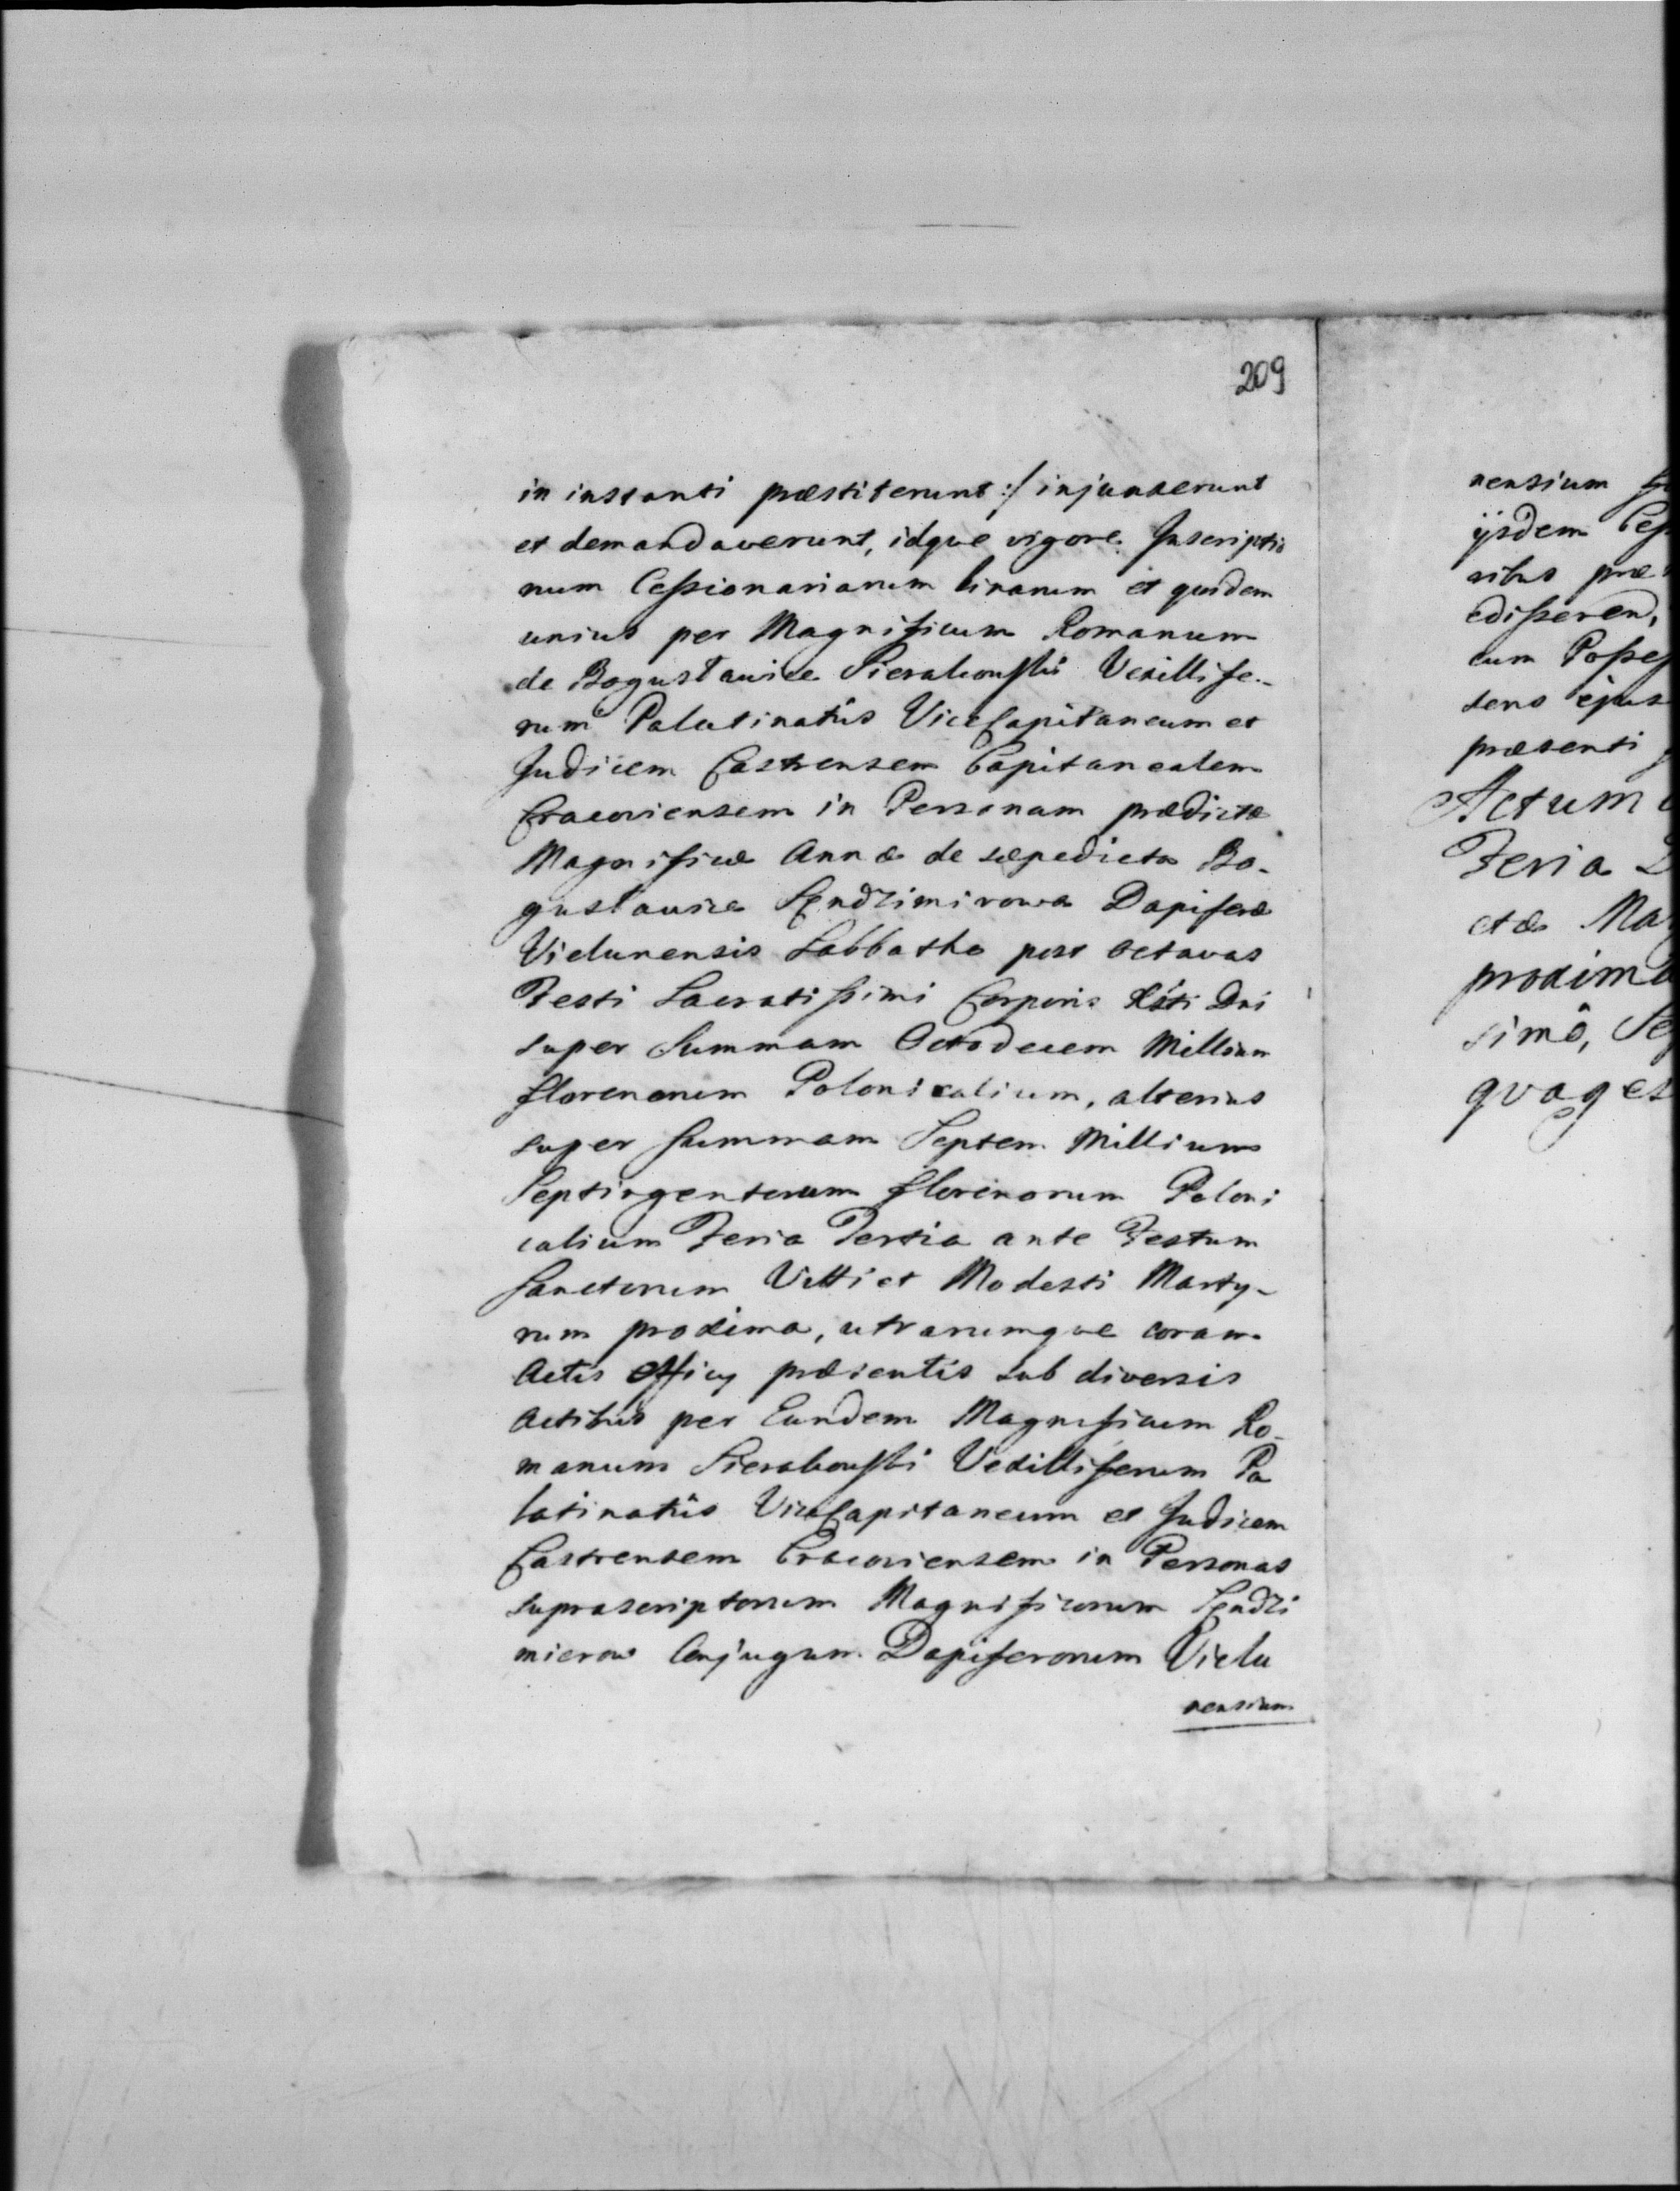 209
in instanti præstiterunt :/ injunxerunt
et demandaverunt, idque vigore Inscriptio
num Cessionariarum binarum et quidem
unius per Magnificum Romanum
de Bogusławice Sierakowski Vexillife-
rum Palatinatûs ViceCapitaneum et
Judicem Castrensem Capitanealem
Cracoviensem in Personam prædictæ
Magnificæ Annæ de sæpedicta Bo-
gusławice Sendzimirowa Dapiferæ
Vielunensis Sabbatho post octavas
Festi Sacratissimi Corporis Xsti Dni
super Summam Octodecem Millium
florenorum Polonicalium, alterius
super Summam Septem Millium
Septingentorum florenorum Poloni
calium Feria Tertia ante Festum
Sanctorum Vitti et Modesti Marty-
rum proxima, utrarumque coram
Actis Officy præsentis sub diversis
Actibus per Eundem Magnificum Ro-
manum Sierakowski Vexilliferum Pa
latinatûs ViceCapitaneum et Judicem
Castrensem Cracoviensem in Personas
suprascriptorum Magnificorum Sendzi
mierow Conjugum Dapiferorum Vielu
nensium
nensium
ijsdem
præ
edisseren,
cum
ejus
præsenti
Actum
Feria
etæ
proxima
simô,